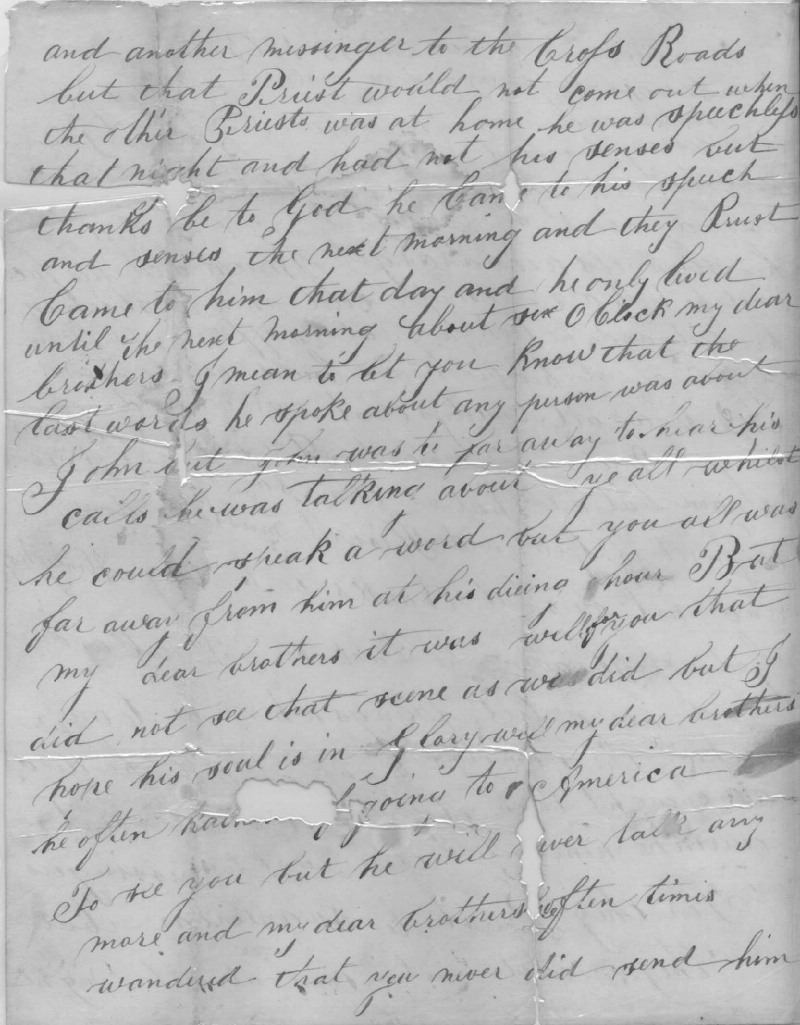 and another messinger to the Cross Roads
but that Priest would not come out when
the other Priests was at home he was speechless
that night and had not his senses but
thanks be to God he Came to his speech
and senses the next morning and they Priest
Came to him that day and he only lived
until the next morning about six O Clock my dear
brothers I mean to let you know that the
last words he spoke about any person was about
John but John was to far away to hear his
calls he was talking about ye all whilst
he could speak a word but you all was
far away from him at his dieing hour But
my dear brothers it was well for you that
did not see that scene as we did but I
hope his soul is in Glory well my dear brothers
he often going to America
To see you but he will never talk any
more and my dear brothers he often times
wandered that you never did send him